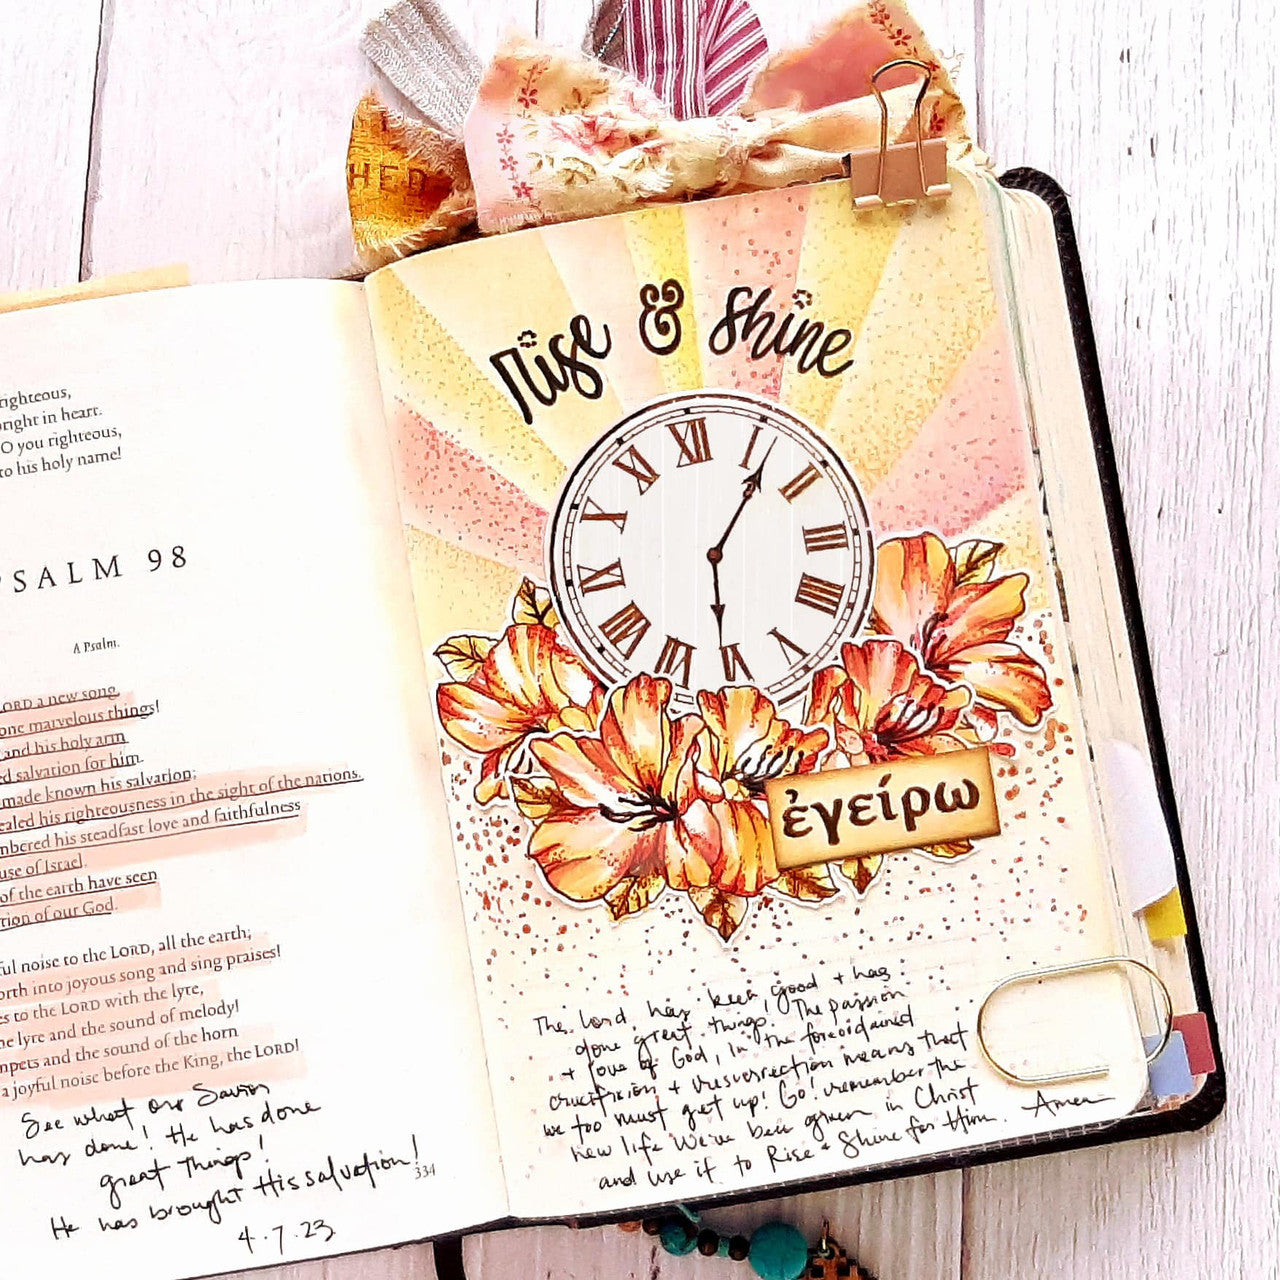 HER
righteous,
right in heart.
O you righteous,
to his holy name!
PSALM 98
A Psalm.
LORD a new song
one marvelous things!
and his holy arm
ed salvation for him.
made known his salvation;
ealed his righteousness in the sight of the nations.
mbered his steadfast love and faithfulness
use of Israel.
of the earth have seen
tion of our God.
ful noise to the LORD, all the earth;
orth into joyous song and sing praises!
es to the LORD with the lyre,
he lyre and the sound of melody!
mpets and the sound of the horn
a joyful noise before the King, the LORD!
See what our Savior
has done! He has done
great things!
He has brought His salvation!
334
4.7.23
Rise & Shine
XII
I
II
III
IIII
V
VI
VII
VIII
IX
X
XI
ἐγείρω
The Lord has been good + has
done great things. The passion
+ love of God, in the foreordained
crucifixion + resurrection means that
we too must get up! Go! remember the
new life We've been given in Christ
and use it to Rise & Shine for Him. Amen